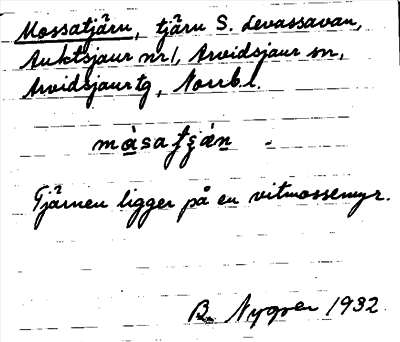 Mossatjärn, tjärn S. Levassavan,
Auktsjaur nr 1, Arvidsjaur sn,
Arvidsjaur tg, Norrb. l.
Tjärnen ligger på en vitmossemyr.
B. Nygren 1932